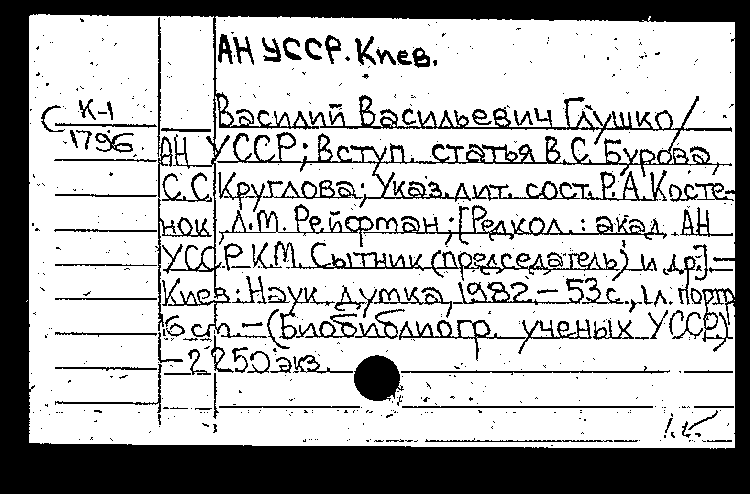 АН УССР. Киев.
С К-1
1796
Василий Васильевич Глушко /
АН УССР; Вступ. статья В.С. Бурова,
С.С. Круглова; Указ. лит. сост. Р.А. Косте-
нок, Л.М. Рейфман; [Редкол.: акад. АН
УССР К.М. Сытник (председатель) и др.].—
Киев: Наук. думка, 1982.— 53 с., 1 л. портр
16 cm.— (Биобиблиогр. ученых УССР)
—2250 экз.